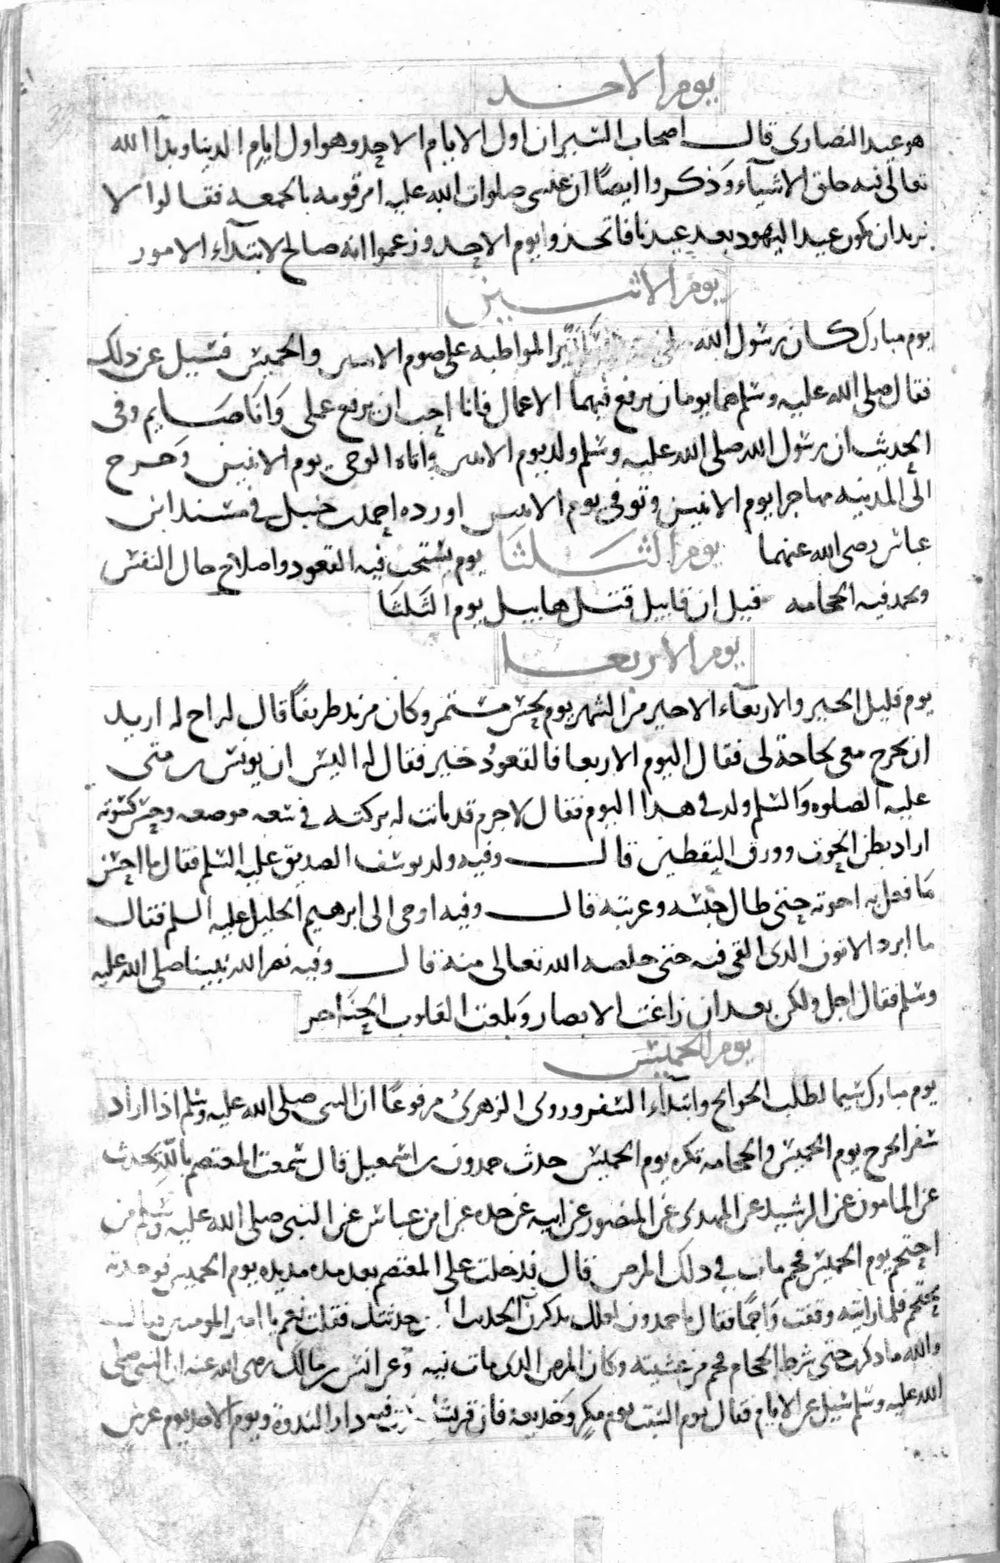 يوم الاحد
هو عيد النصارى قال اصحاب السير ان اول الايام الاحد وهو اول ايام الدنيا وبدا الله
تعالى فيه خلق الاشياء وذكروا ايضا ان عيسى صلوات الله عليه امر قومه بالجمعه فقالوا لا
نريد ان يكون عيد اليهود بعد عيدنا فاتخذوا يوم الاحد وزعموا انه صالح لابتداء الامور
يوم الاثنين
يوم مبارك كان رسول الله كثير المواظبه على صوم الاثنين والخميس فسئل عن ذلك
فقال صلى الله عليه وسلم هما يومان يرفع فيهما الاعمال فانا احب ان يرفع عملى وانا صايم وفى
الحديث ان رسول الله صلى الله عليه وسلم ولد يوم الاثنين واتاه الوحى يوم الاثنين وخرج
الى المدينه مهاجرا يوم الاثنين وتوفى يوم الاثنين اورده احمد بن حنبل فى مسند ابن
عباس رضى الله عنهما يوم الثلثا يوم يستحب فيه القعود واصلاح حال النفس
ويحمد فيه الحجامه قيل ان قابيل قتل هابيل يوم الثلثا
يوم الاربعا
يوم قليل الخير والاربعاء الاخير من الشهر يوم نحس مستمر وكان مزيد ظريفا قال له اخ له اريد
ان تخرج معى لحاجة لى فقال اليوم الاربعا فالقعود خير فقال له اليس ان يونس بن متى
عليه الصلوه والسلم ولد فى هذا اليوم فقال لا جرم قد بانت له بركته فى سعه موضعه وحسن كسوته
اراد بطن الحوت وورق اليقطين قال وفيه ولد يوسف الصديق عليه السلم فقال ما احسن
ما فعل به اخوته حتى طال حبسه وغربته قال وفيه اوحى الى ابرهيم الخليل عليه السلم فقال
ما ابرد الاتون الذى القى فيه حتى خلصه الله تعالى منه قال وفيه نصر الله نبينا صلى الله عليه
وسلم فقال اجل ولكن بعد ان زاغت الابصار وبلغت القلوب الحناجر
يوم الخميس
يوم مبارك سيما لطلب الحوائج وابتداء السفر وروى الزهرى مرفوعا ان النبى صلى الله عليه وسلم اذا اراد
سفرا خرج يوم الخميس والحجامه تكره يوم الخميس حدث حمدون بن اسمعيل قال سمعت المعتصم بالله يحدث
عن المامون عن الرشيد عن المهدى عن المنصور عن ابيه عن جده عن ابن عباس عن النبى صلى الله عليه وسلم من
احتجم يوم الخميس فحم مات فى ذلك المرض قال فدخلت على المعتصم بعد مده مديده يوم الخميس فوجدته
يحتجم فلما رايته وقفت واجما فقال يا حمدون لعلك تذكرت الحديث حدثتك فقلت نعم يا امير المومنين قال
والله ما ذكرت حتى شرط الحجام فحم من عشيته وكان المرض الذى مات فيه وعن انس بن مالك رضى الله عنه ان النبى صلى
الله عليه وسلم سئل عن الايام فقال يوم السبت يوم مكر وخديعه فان قريشا فيه دار الندوة ويوم الاحد يوم غرس